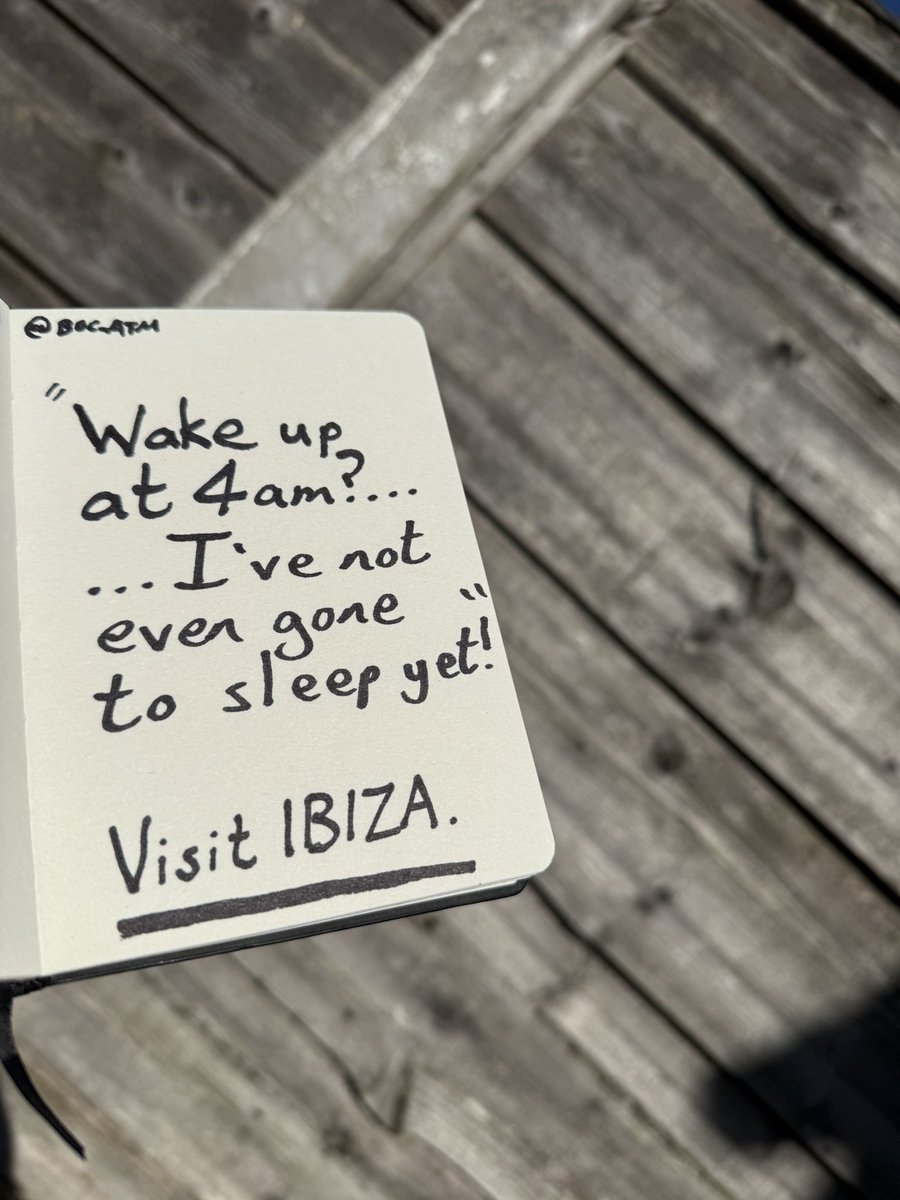 @BOC.ATM
"Wake up
at 4am?....
...I've not
even gone
to sleep yet!"
Visit IBIZA.